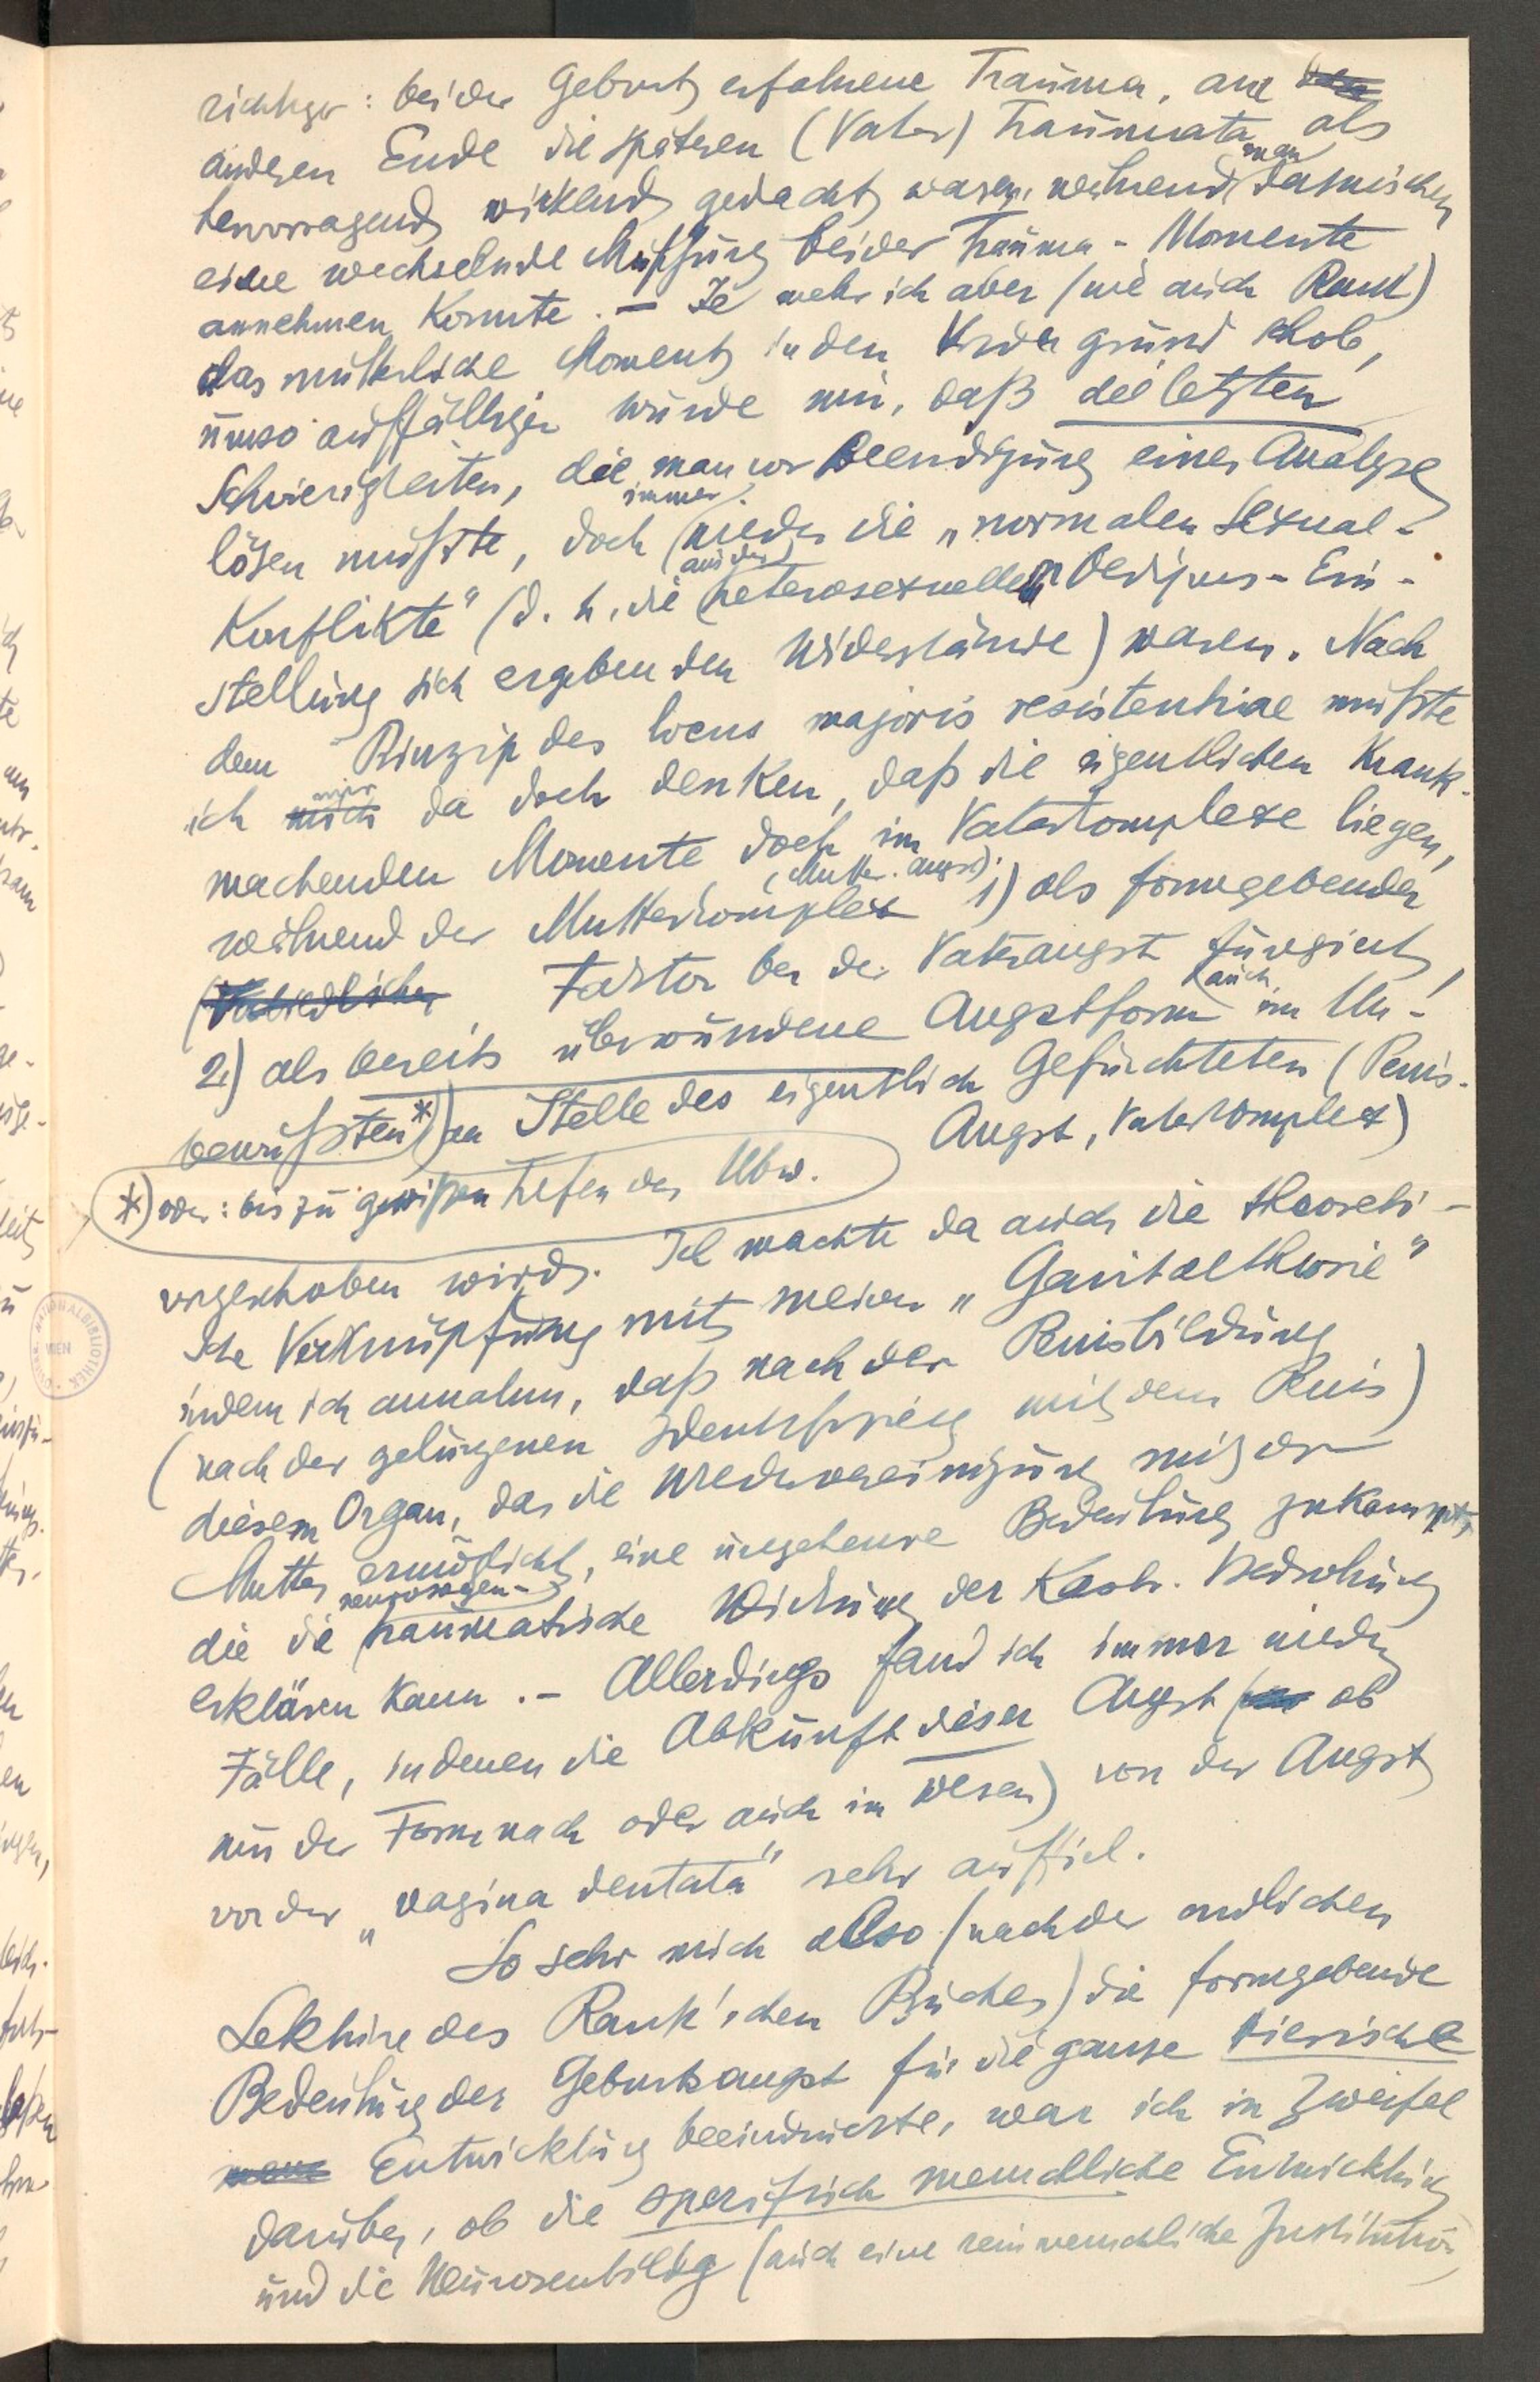 richtiger: bei der Geburt erfahrene Trauma, am
anderen Ende die späteren (Vater) Traumata als
hervorragend wirkend gedacht waren, während man dazwischen
eine wechselnde Mischung beider Trauma-Momente
annehmen konnte. – Je mehr ich aber (wie auch Rank)
das mütterliche Moment in den Vordergrund schob,
umso auffälliger wurde mir, daß die letzten
Schwierigkeiten, die man vor Beendigung einer Analyse
lösen mußte, doch immer wieder die „normalen Sexual-
Konflikte" (d. h. die aus der heterosexuellen Oedipus-Ein-
stellung sich ergebenden Widerstände) waren. Nach
dem Prinzip des locus majoris resistentiae mußte
ich mir da doch denken, daß die eigentlichen krank-
machenden Momente doch im Vaterkomplexe liegen,
während der Mutterkomplex (Mutter-angst) 1) als formgebender
Faktor bei der Vaterangst fungiert,
2) als bereits überwundene Angstform auch im Un-
bewußten*) an Stelle des eigentlich Gefürchteten (Penis-
Angst, Vaterkomplex)
*) oder: bis zu gewißen Tiefen des Ubw.
vorgeschoben wird. Ich machte da auch die theoreti-
sche Verknüpfung mit meiner „Genitaltheorie"
indem ich annahm, daß nach der Penisbildung
(nach der gelungenen Identifizierg mit dem Penis)
diesem Organ, das die Wiedervereinigung mit der
Mutter ermöglicht, eine ungeheure Bedeutung zukommt,
die die neurosogen-traumatische Wirkung der Kastr. Bedrohung
erklären kann. – Allerdings fand ich immer wieder
Fälle, in denen die Abkunft dieser Angst (ob
nur der Form nach oder auch im Wesen) von der Angst
vor der „vagina dentata" sehr auffiel.
So sehr mich also (nach der endlichen
Lektüre des Rank'schen Buches) die formgebende
Bedeutung der Geburtsangst für die ganze tierische
Entwicklung beeindruckte, war ich in Zweifel
darüber, ob die spezifisch menschliche Entwicklung
und die Neurosenbildg (auch eine rein menschliche Institution,